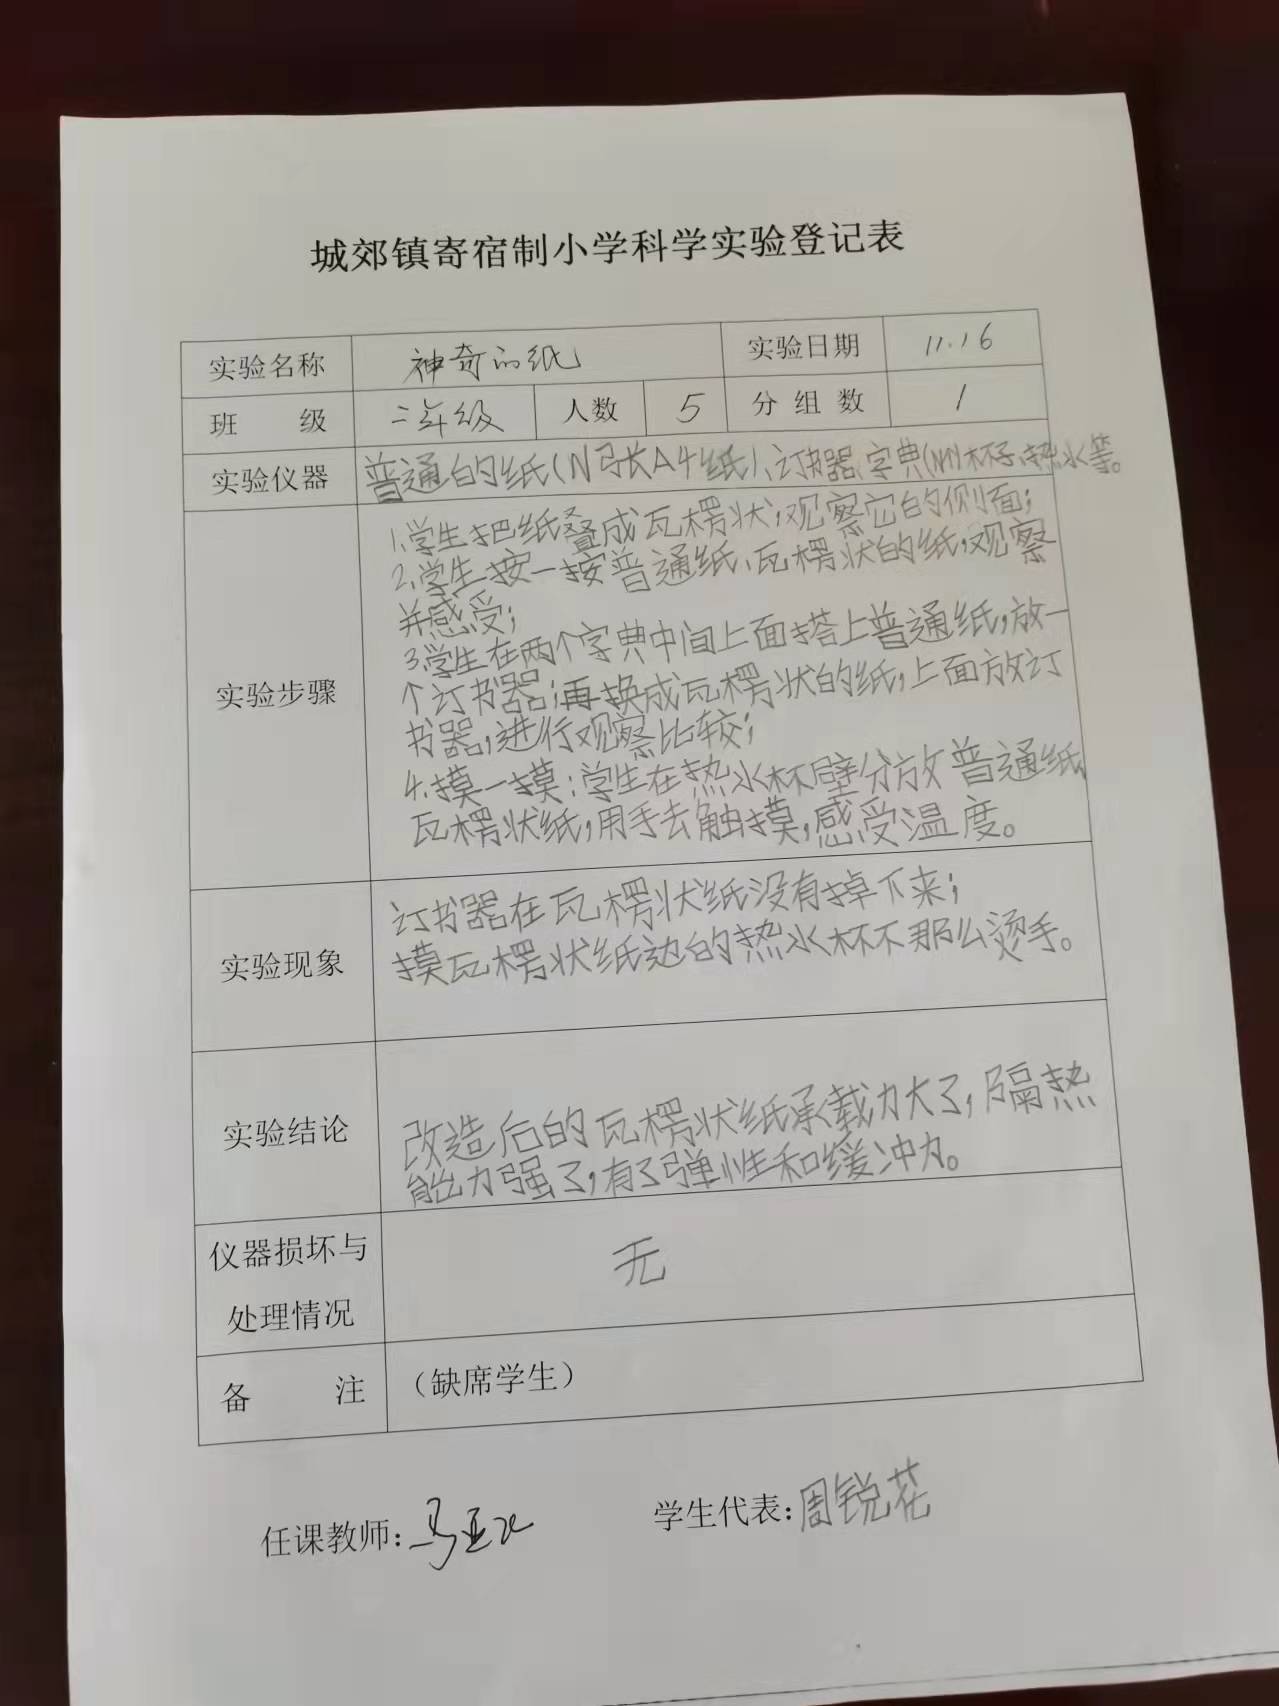 城郊镇寄宿制小学科学实验登记表
实验名称 神奇的纸 实验日期 11.16
班 级 二年级 人数 5 分组数 1
实验仪器 普通的纸(A4纸)、订书器、字典、杯子、热水等。
1.学生把纸叠成瓦楞状,观察它的侧面;
2.学生按一按普通纸、瓦楞状的纸,观察
并感受;
3.学生在两个字典中间上面搭上普通纸,放一
实验步骤 个订书器;再换成瓦楞状的纸,上面放订
书器,进行观察比较;
4.摸一摸:学生在热水杯壁分放普通纸、
瓦楞状纸,用手去触摸,感受温度。
订书器在瓦楞状纸没有掉下来;
实验现象 摸瓦楞状纸边的热水杯不那么烫手。
实验结论 改造后的瓦楞状纸承载力大了,隔热
能力强了,有了弹性和缓冲力。
仪器损坏与
处理情况 无
备 注 (缺席学生)
任课教师: 学生代表:周锐花